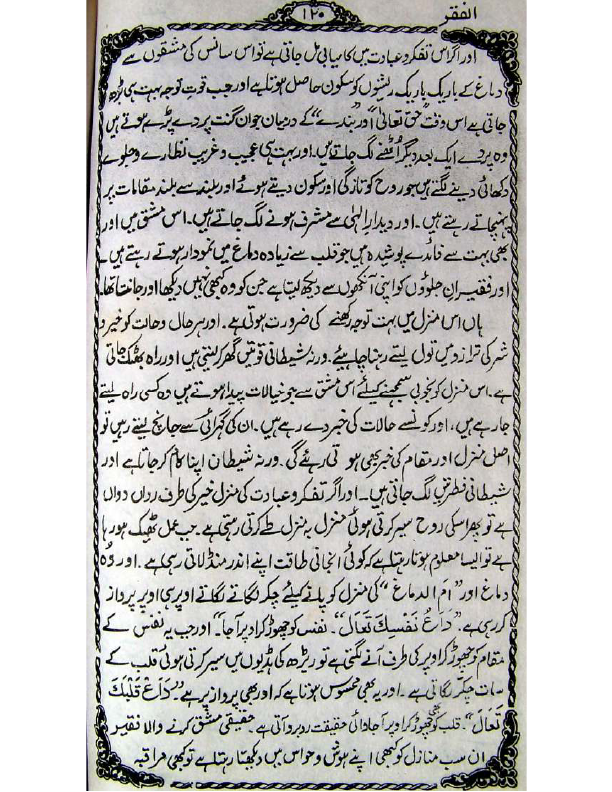 الفقر
۱۲۰
اور اگر اس تفکر و عبادت میں کامیابی مل جاتی ہے تو اس سانس کی مشقوں سے
دماغ کے باریک باریک ریشوں کو سکون حاصل ہوتا ہے اور جب قوت توجہ بہت ہی بڑھ
جاتی ہے اس وقت "حق تعالیٰ" اور "بندے" کے درمیان جو ان گنت پردے پڑے ہوتے ہیں
وہ پردے ایک بعد دیگر اُٹھنے لگ جاتے ہیں۔ اور بہت سی عجیب و غریب نظارے و جلوے
دکھائی دینے لگتے ہیں جو روح کو تازگی اور سکون دیتے ہوئے اور بلند سے بلند مقامات پر
پہنچاتے رہتے ہیں۔ اور دیدارِ الٰہی سے مشرف ہونے لگ جاتے ہیں۔ اس مشق میں اور
بھی بہت سے فائدے پوشیدہ ہیں جو قلب سے زیادہ دماغ میں نمودار ہوتے رہتے ہیں
اور فقیر ان جلوؤں کو اپنی آنکھوں سے دیکھ لیتا ہے جن کو وہ کبھی نہیں دیکھا اور جانتا تھا۔
ہاں اس منزل میں بہت توجہ رکھنے کی ضرورت ہوتی ہے۔ اور ہر حال و حالت کو خیر و
شر کی ترازو میں تول لیتے رہنا چاہیئے۔ ورنہ شیطانی قوتیں گھر کر لیتی ہیں اور راہ بھٹک جاتی
ہے۔ اس منزل کو بخوبی سمجھنے کیلئے اس مشق سے جو خیالات پیدا ہوتے ہیں وہ کسی راہ لیتے
جا رہے ہیں، اور کونسے حالات کی خبر دے رہے ہیں۔ ان کی گہرائی سے جانچ لیتے رہیں تو
اصلی منزل اور مقام کی خبر بھی ہوتی رہے گی۔ ورنہ شیطان اپنا کام کر جاتا ہے اور
شیطانی فطرتیں لگ جاتی ہیں۔ اور اگر تفکر و عبادت کی منزل خیر کی طرف رواں دواں
ہے تو پھر اسکی روح سیر کرتی ہوئی منزل بہ منزل طے کرتی رہتی ہے۔ جب عمل ٹھیک ہو رہا
ہے تو ایسا معلوم ہوتا رہتا ہے کہ کوئی انجانی طاقت اپنے اندر منڈلاتی رہی ہے۔ اور وہ
دماغ اور "ام الدماغ" کی منزل کو پانے کیلئے چکر لگاتے لگاتے اوپر ہی اوپر پرواز
کر رہی ہے "دَاعُ نَفْسِكَ تَعَالَ"۔ نفس کو چھوڑ کر اوپر آ جا"۔ اور جب یہ نفس کے
مقام کو چھوڑ کر اوپر کی طرف آنے لگتی ہے تو ریڑھ کی ہڈیوں میں سیر کرتی ہوئی قلب کے
سات چکر لگاتی ہے۔ اور یہ بھی محسوس ہوتا ہے کہ اور بھی پرواز پر ہے "دَاعْ قَلْبَكَ
تَعَالَ"۔ قلب کو بھی چھوڑ کر اوپر آ جا تو اتنی حقیقت رو برو آتی ہے۔ حقیقی مشق کرنے والا فقیر
ان سب منازل کو کبھی اپنے ہوش و حواس میں دیکھتا رہتا ہے تو کبھی مراقبہ